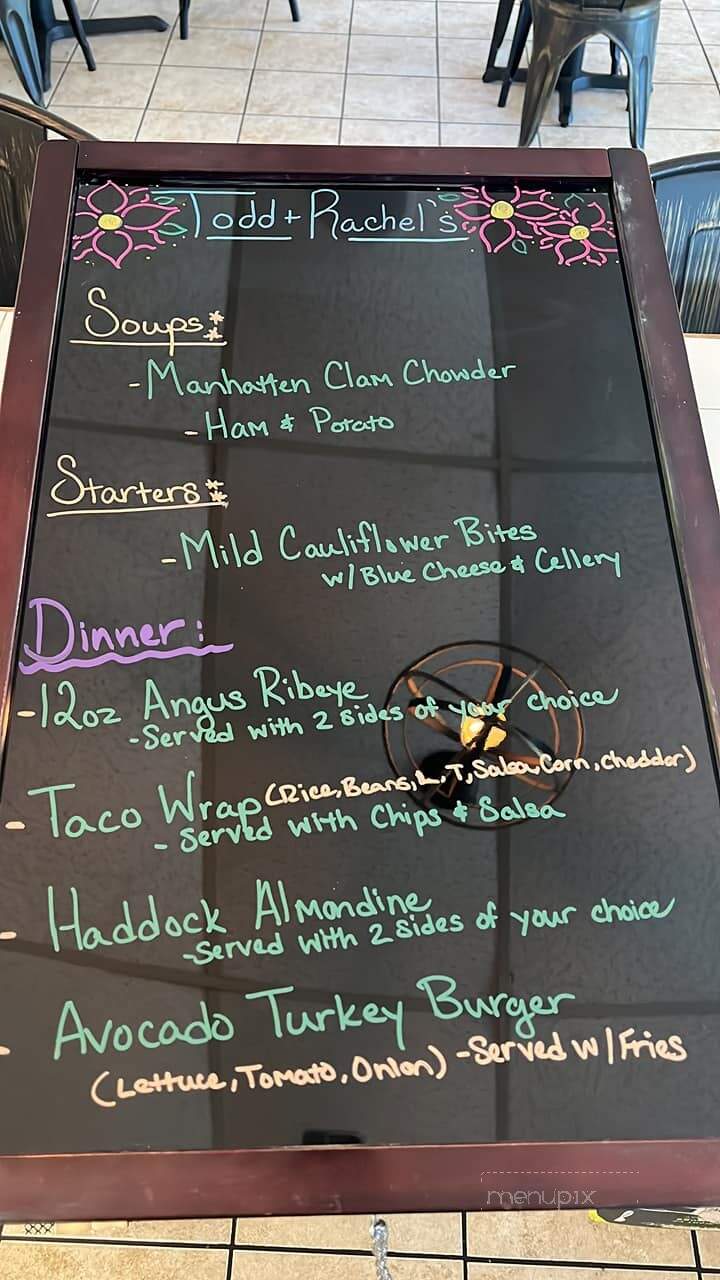 Todd + Rachel's
Soups:
- Manhatten Clam Chowder
- Ham & Potato
Starters:
- Mild Cauliflower Bites
w/ Blue Cheese & Cellery
Dinner:
- 12oz Angus Ribeye
- Served with 2 sides of your choice
- Taco Wrap (Rice, Beans, L, T, Salsa, Corn, Cheddar)
- Served with Chips & Salsa
- Haddock Almondine
- Served with 2 sides of your choice
- Avocado Turkey Burger
(Lettuce, Tomato, Onion) - Served w/ Fries
menupix